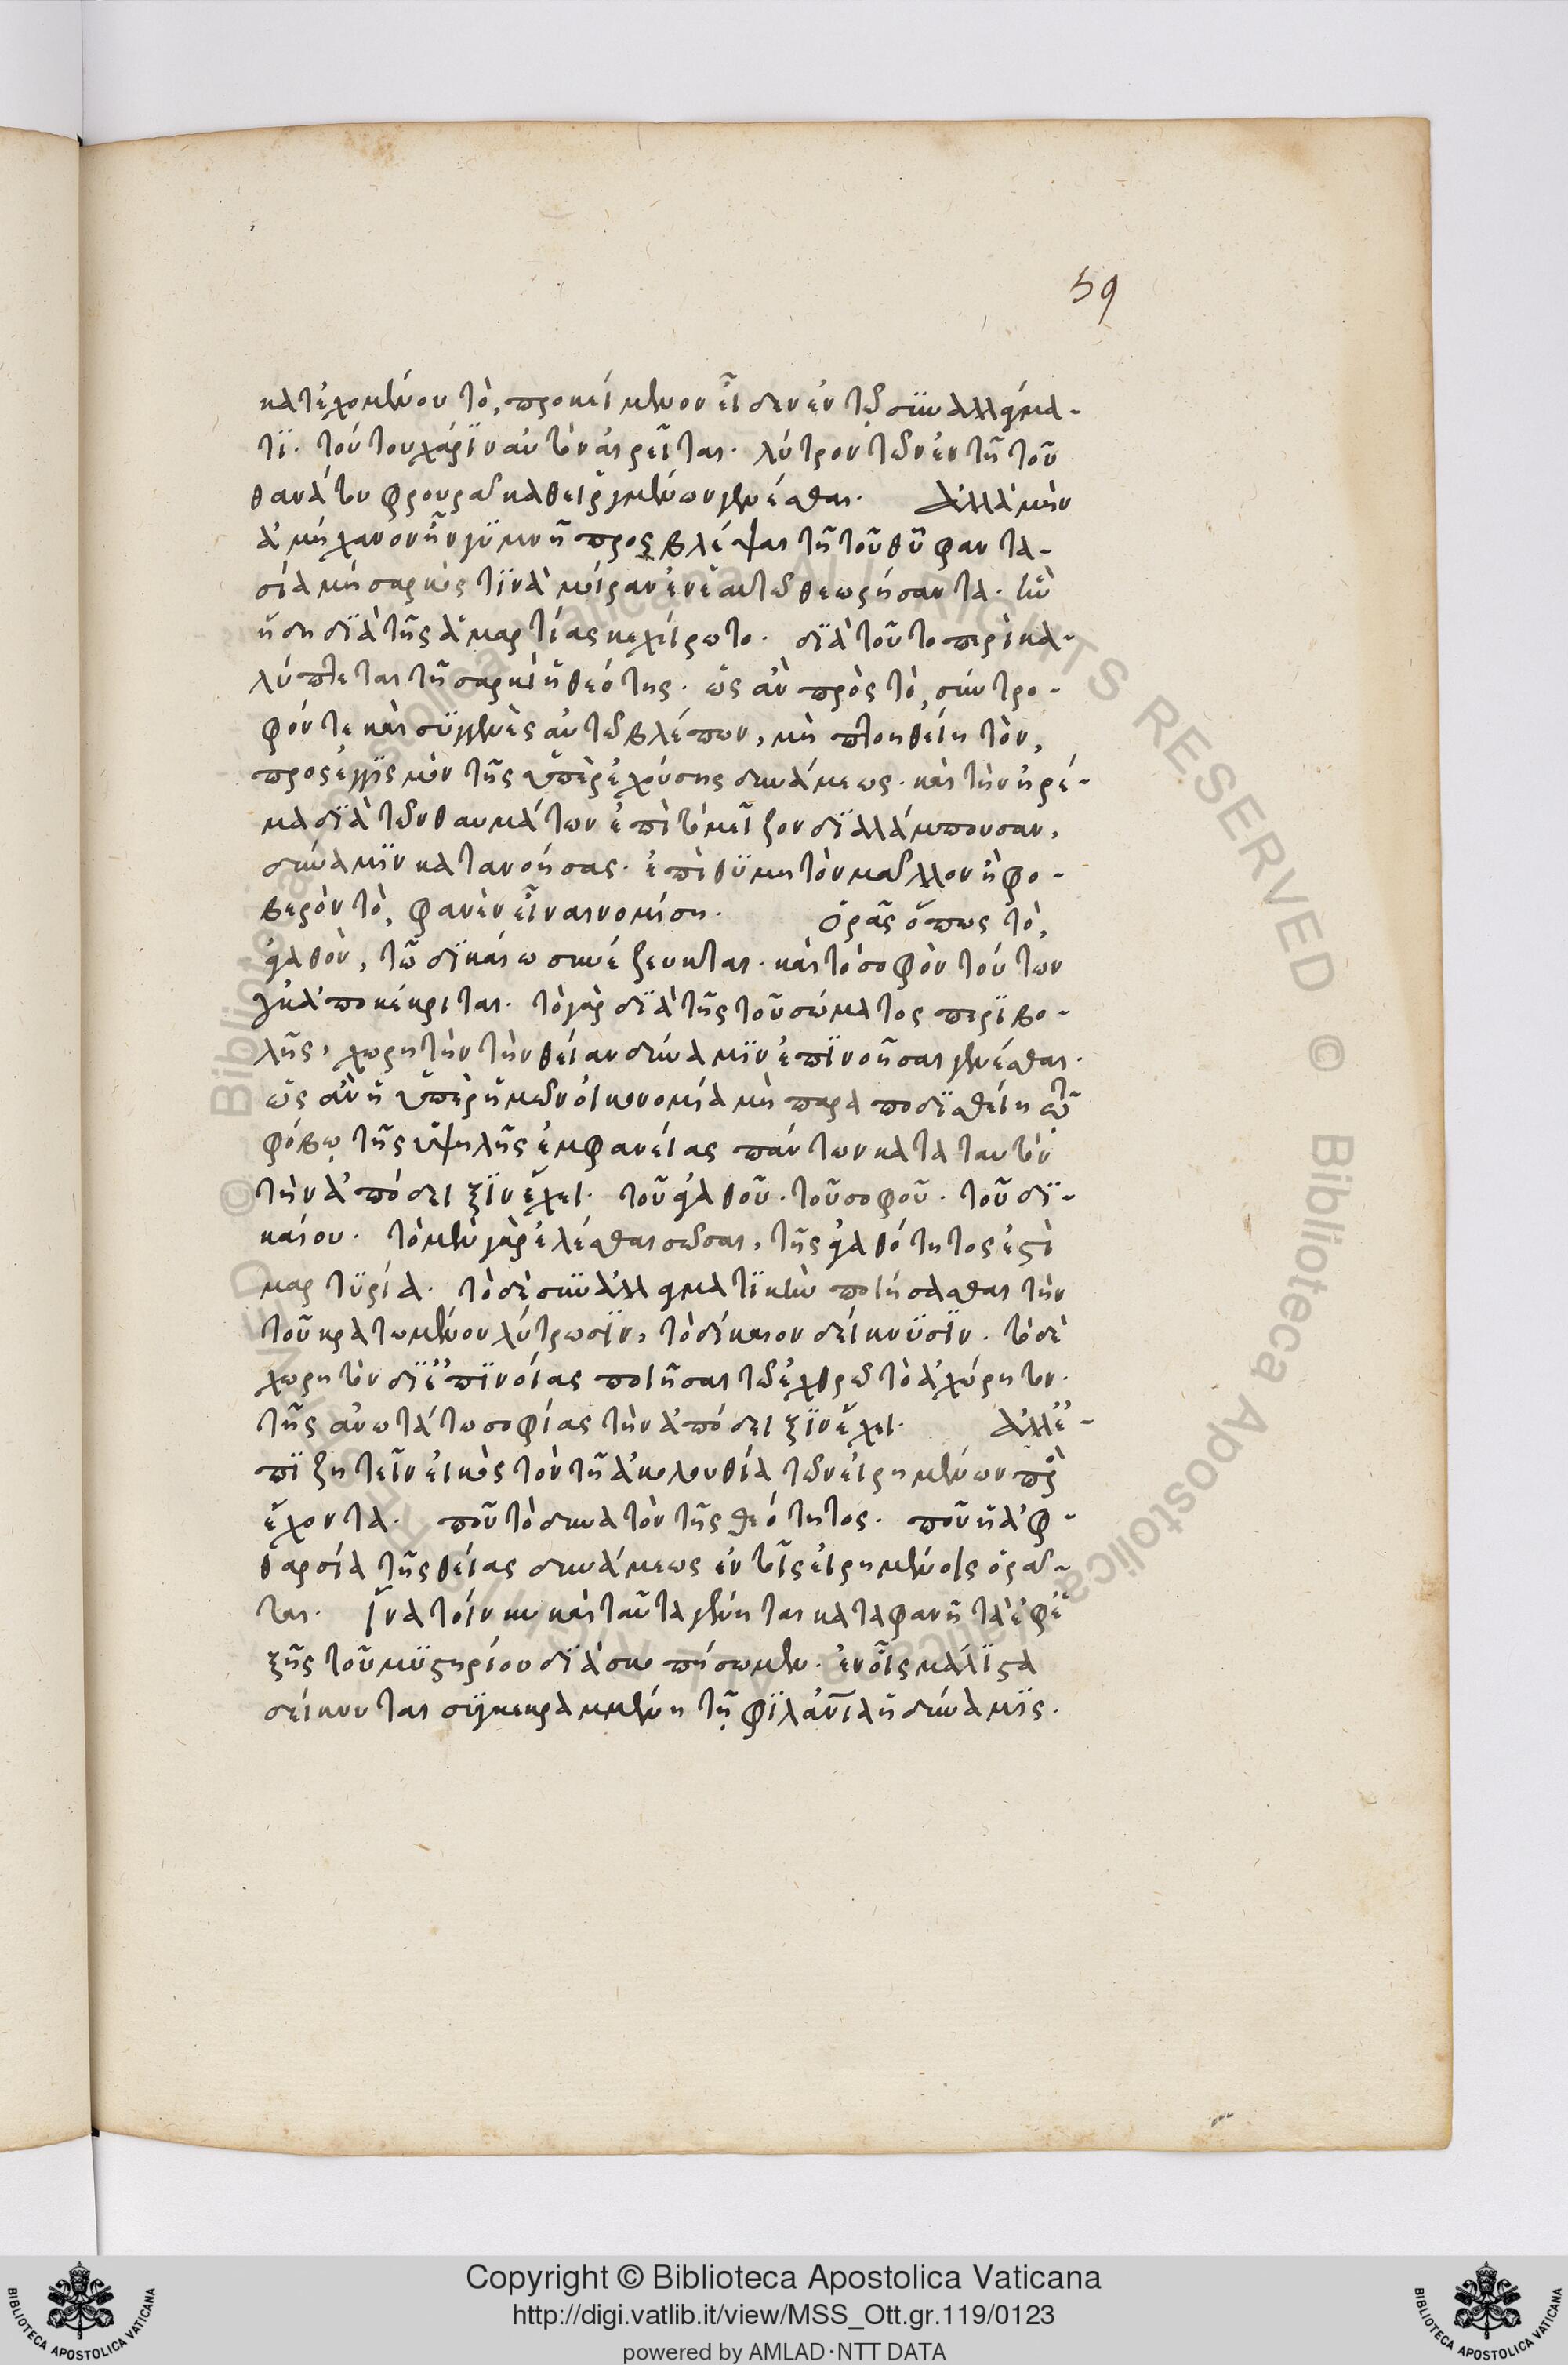 59
κατεχομένου τὸ, προκείμενον εἶδεν ἐν τῷ συναλλάγμα-
τι. τούτου χάριν αὐτὸν αἱρεῖται. λύτρον τῶν ἐν τῇ τοῦ
θανάτου φρουρᾷ καθειργμένων γενέσθαι. Ἀλλὰ μὴν
ἀμήχανον ἦν γυμνῇ προσβλέψαι τῇ τοῦ θῦ φαντα-
σία μὴ σαρκός τινα μοίραν ἐν ἑαυτῷ θεωρήσαντα. ἣν
ἤδη διὰ τῆς ἁμαρτίας κεχείρωτο. διὰ τοῦτο περικα-
λύπτεται τῇ σαρκὶ ἡ θεότης. ὡς ἂν πρὸς τὸ, σύντρο-
φόν τε καὶ συγγενὲς αὐτῷ βλέπων, μὴ πτοηθείη τὸν,
προσεγγισμὸν τῆς ὑπερεχούσης δυνάμεως. καὶ τὴν ἠρέ-
μα διὰ τῶν θαυμάτων ἐπὶ τὸ μεῖζον διαλλάμπουσαν,
δύναμιν κατανοήσας. ἐπιθυμητὸν μᾶλλον ἢ φο-
βερὸν τὸ, φανὲν εἶναι νομίση. Ὁρᾶς ὅπως τὸ,
ἀγαθὸν, τῶ δικαίω συνέζευκται. καὶ τὸ σοφὸν τούτων
οὐκ ἀποκέκριται. τὸ γὰρ διὰ τῆς τοῦ σώματος περιβο-
λῆς, χωρητὴν τὴν θείαν δύναμιν ἐπινοῆσαι γενέσθαι.
ὡς ἂν ἡ ὑπὲρ ἡμῶν οἰκονομία μὴ παραποδισθείη τῷ
φόβῳ τῆς ὑψηλῆς ἐμφανείας πάντων κατὰ ταυτὸν
τὴν ἀπόδειξιν ἔχει. τοῦ ἀγαθοῦ. τοῦ σοφοῦ. τοῦ δι-
καίου. τὸ μὲν γὰρ ἑλέσθαι σῶσαι, τῆς ἀγαθότητος ἐστὶ
μαρτυρία. τὸ δὲ συναλλαγματικὴν ποιήσασθαι τὴν
τοῦ κρατωμένου λύτρωσιν, τὸ δίκαιον δείκνυσιν. τὸ δὲ
χωρητὸν δι' ἐπινοίας ποιῆσαι τῷ ἐχθρῷ τὸ ἀχώρητον.
τῆς ἀνωτάτω σοφίας τὴν ἀπόδειξιν ἔχει. Ἀλλ' ἐ-
πιζητεῖν εἰκὸς τὸν τῇ ἀκολουθία τῶν εἰρημένων προς
έχοντα. ποῦ τὸ δυνατὸν τῆς θεότητος. ποῦ ἡ ἀφ-
θαρσία τῆς θείας δυνάμεως ἐν τοῖς εἰρημένοις ὁρᾶ-
ται. ἵνα τοίνυν καὶ ταῦτα γένηται καταφανῆ τὰ ἐφε
ξῆς τοῦ μυστηρίου διασκοπήσωμεν. ἐν οἷς μάλιστα
δείκνυται συγκεκραμμένη τῇ φιλανία ἡ δύναμις.
Copyright © Biblioteca Apostolica Vaticana
http://digi.vatlib.it/view/MSS_Ott.gr.119/0123
powered by AMLAD·NTT DATA